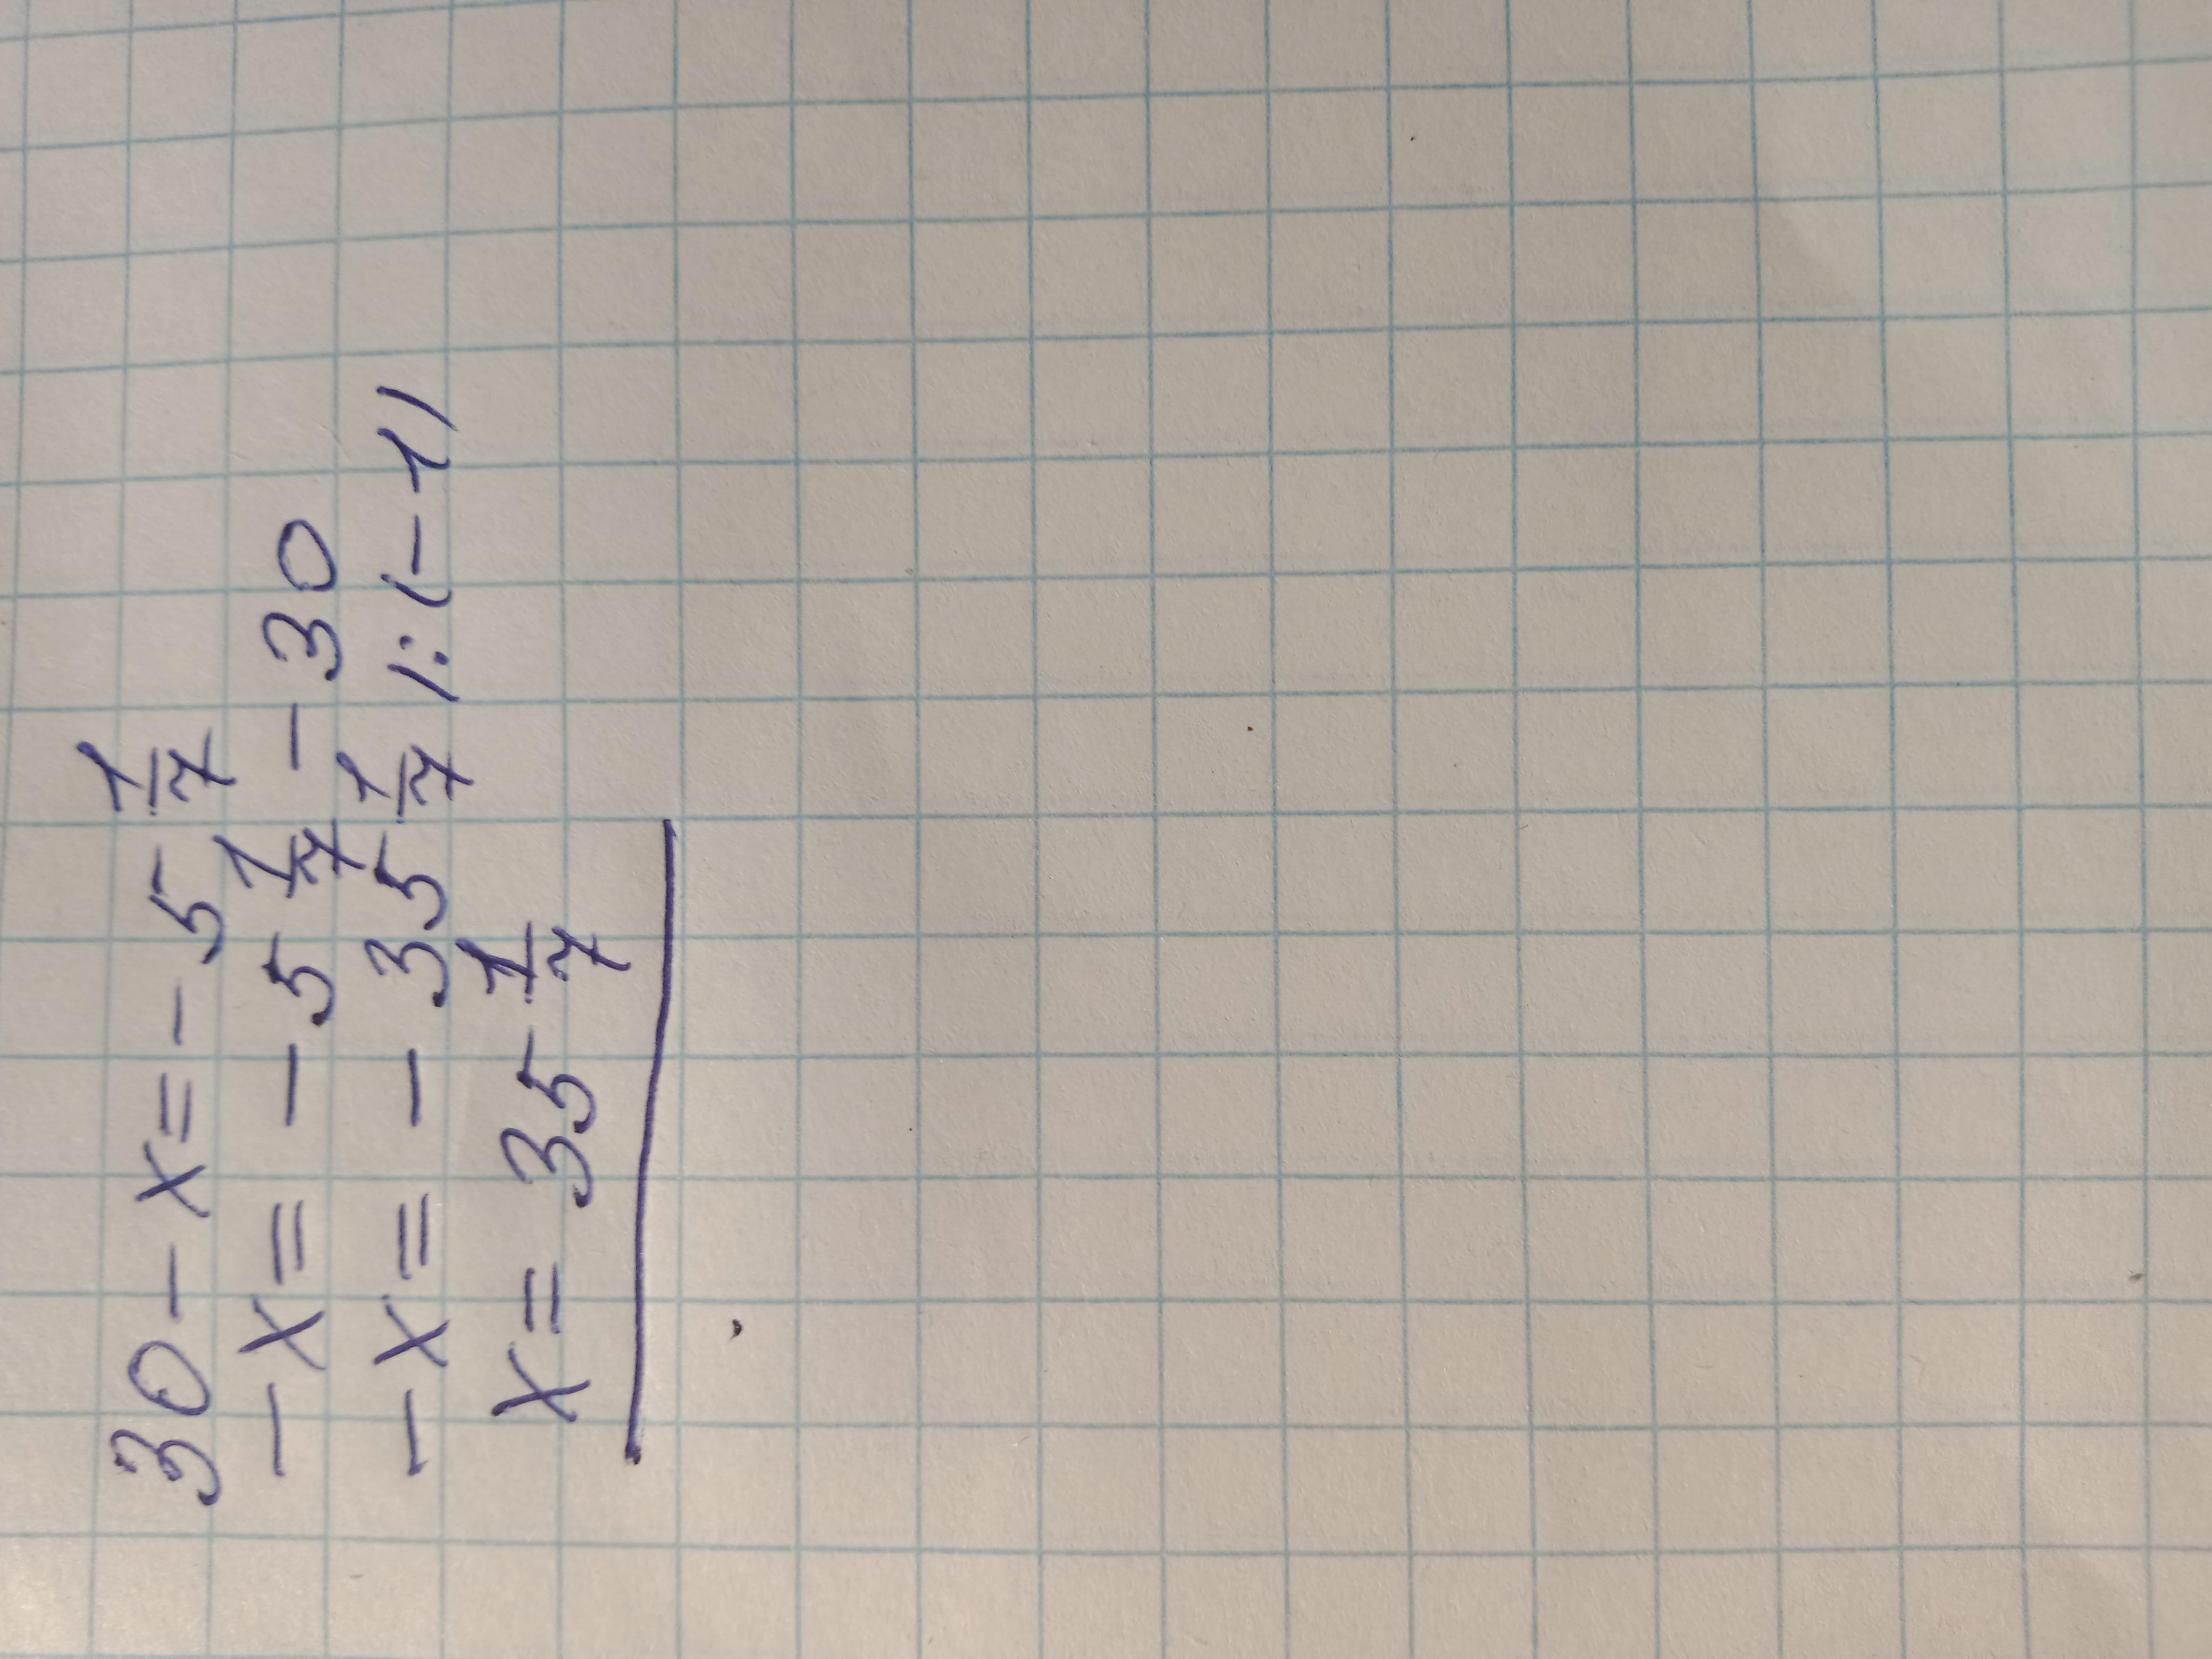 30 - x = - 5 1/7
- x = - 5 1/7 - 30
- x = - 35 1/7 |:(-1)
x = 35 1/7